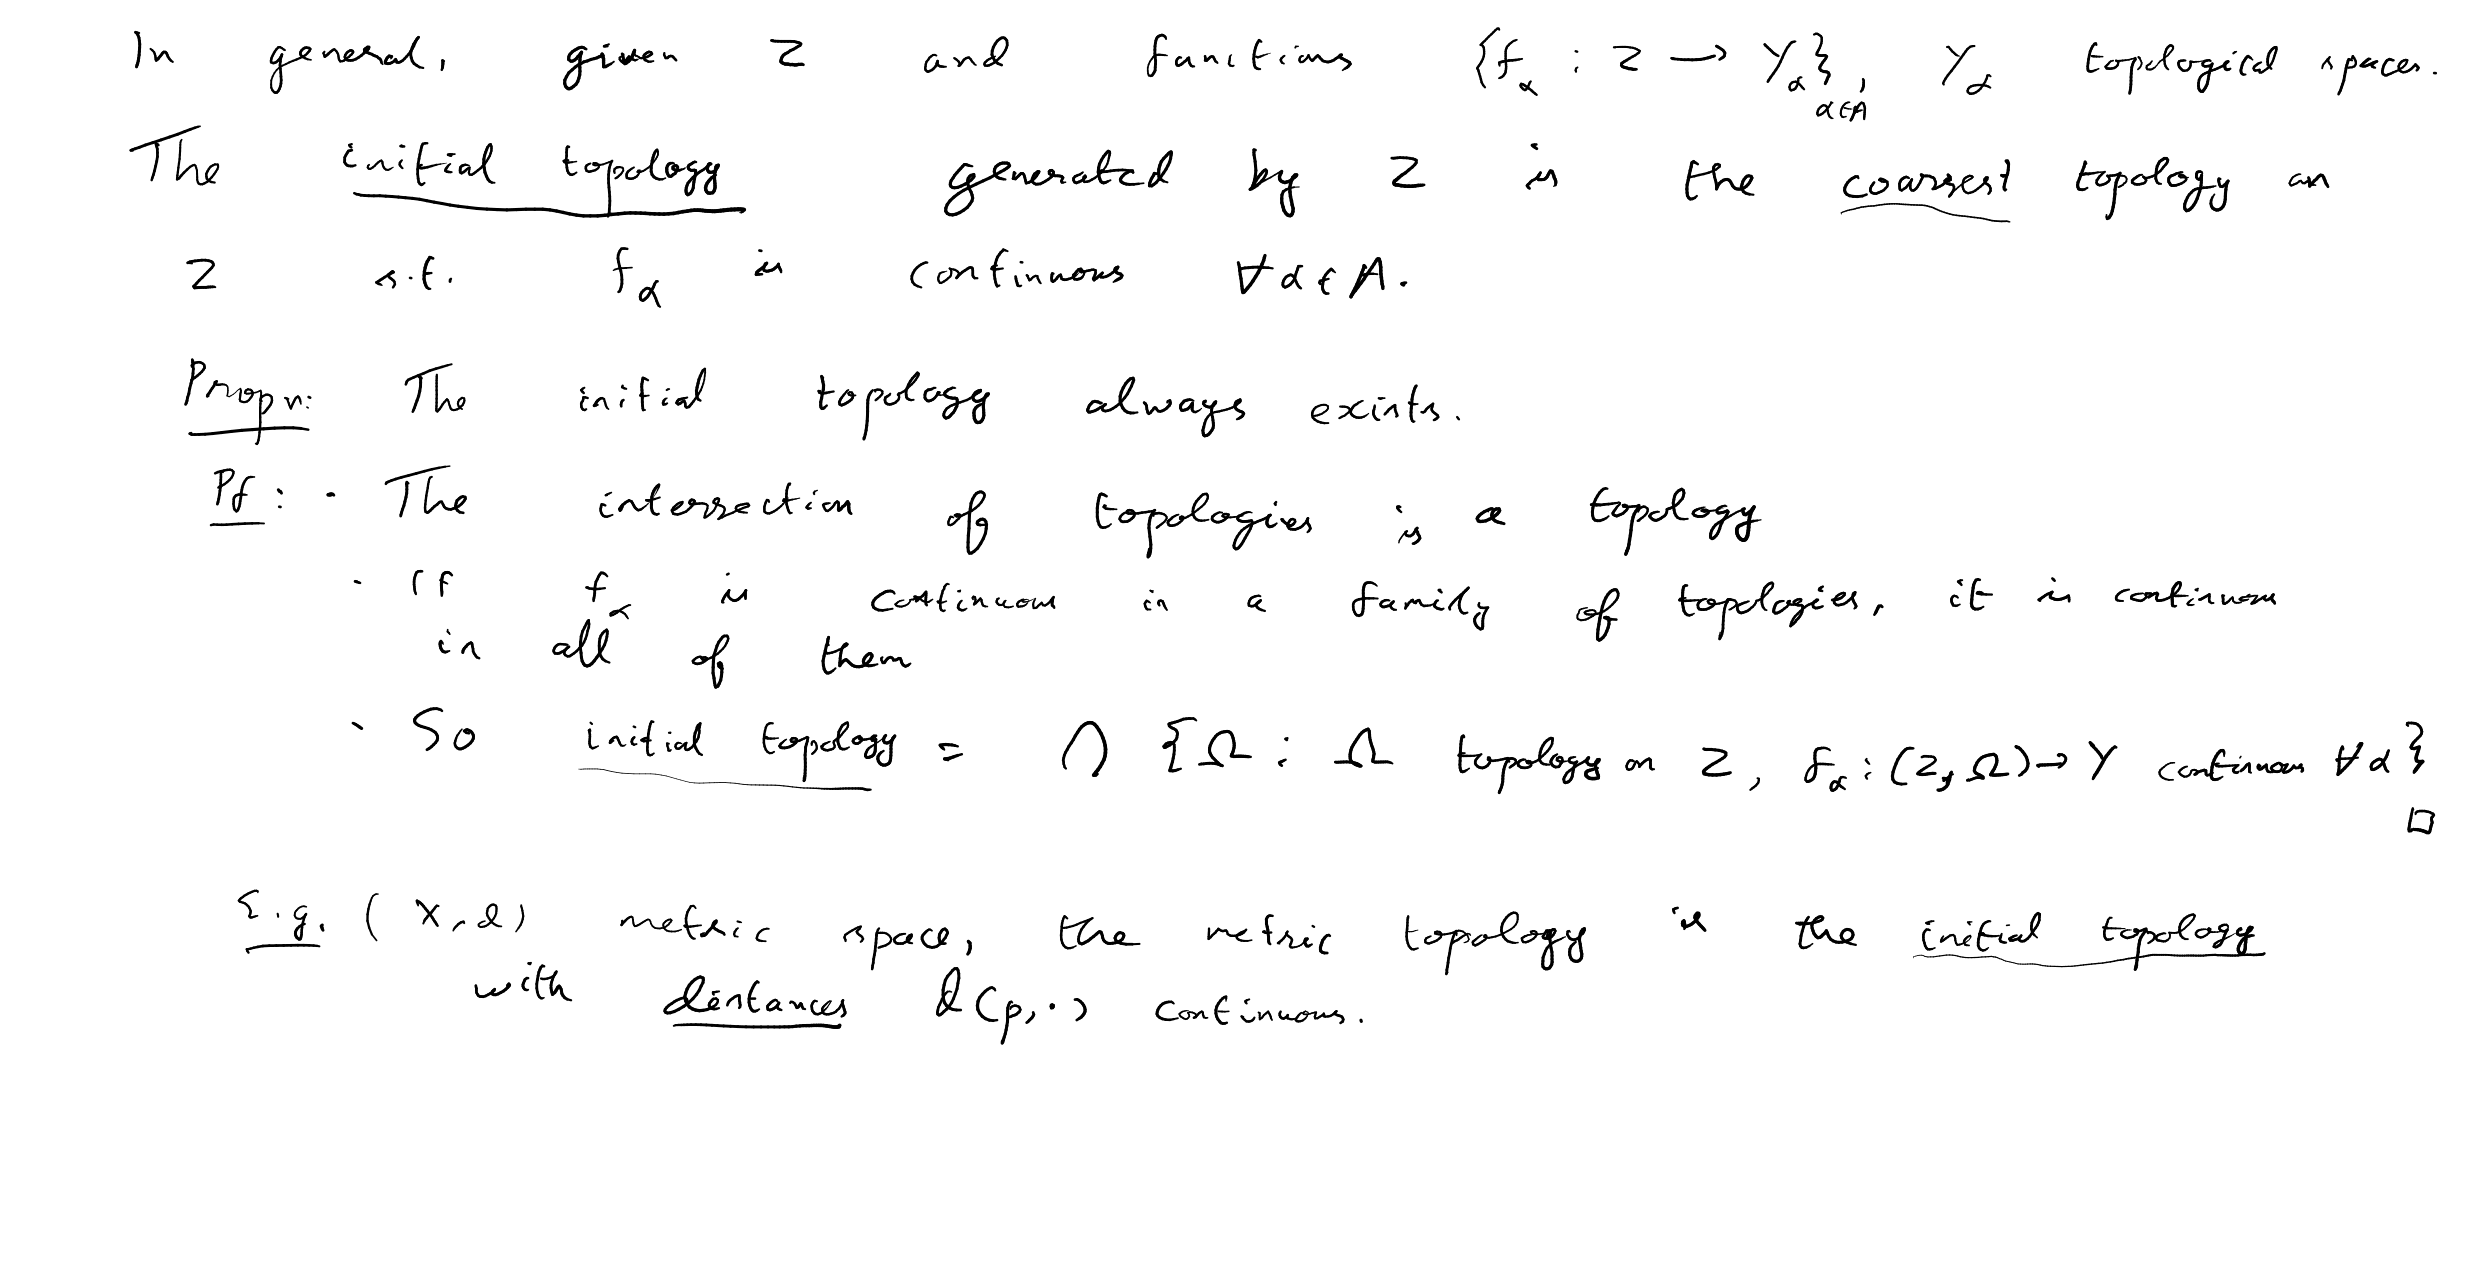 In general, given Z and functions {f_α : Z → Y_α}_{α∈A}, Y_α topological spaces.
The initial topology generated by Z is the coarsest topology on
Z s.t. f_α is continuous ∀α∈A.
Propn: The initial topology always exists.
Pf: · The intersection of topologies is a topology
· If f_α is continuous in a family of topologies, it is continuous
in all of them
· So initial topology = ∩ {Ω : Ω topology on Z, f_α : (Z, Ω) → Y continuous ∀α}
□
E.g. (X, d) metric space, the metric topology is the initial topology
with distances d(p, ·) continuous.